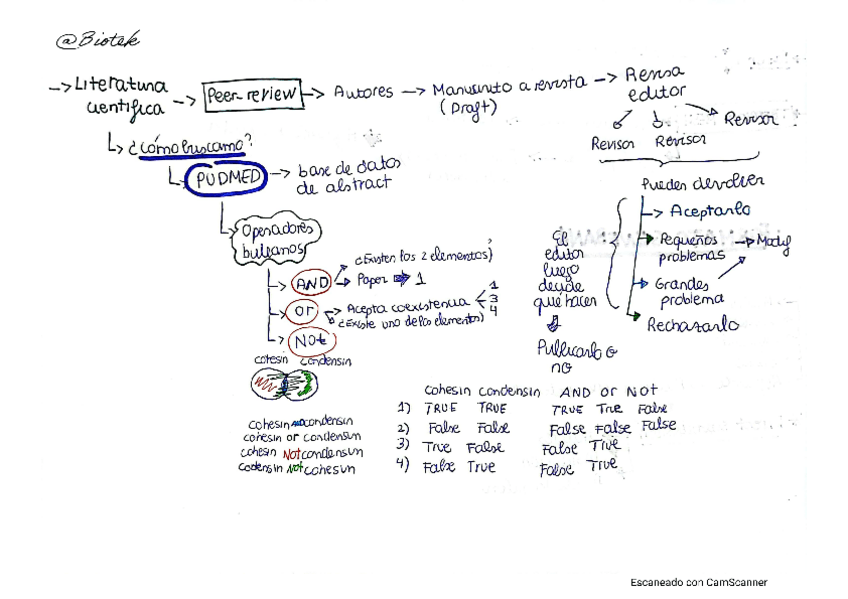 @Biotek
→ Literatura científica → Peer-review → Autores → Manuscrito a revista (Draft) → Revisa editor
Revisor Revisor Revisor
↳ ¿cómo buscamo?
PUDMED → base de datos de abstract
Operadores buleanos
AND
¿Existen los 2 elementos)
Paper → 1
or → Acepta coexistencia 1 3 4
¿Existe uno de los elementos)
Not
Pueden devolver
→ Aceptarlo
Pequeños problemas → Modif
Grandes problema
Rechazarlo
El editor luego decide que hacer
Publicarlo o no
cohesin condensin
cohesin AND condensin
cohesin or condensin
cohesin Not condensin
codensin Not cohesin
cohesin condensin AND or Not
1) TRUE TRUE TRUE True False
2) False False False False False
3) True False False True
4) False True False True
Escaneado con CamScanner